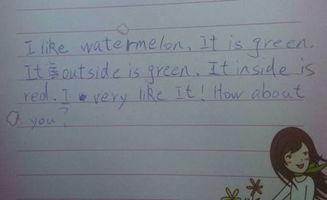 I like watermelon. It is green.
It outside is green. It inside is
red. I very like It! How about
you?